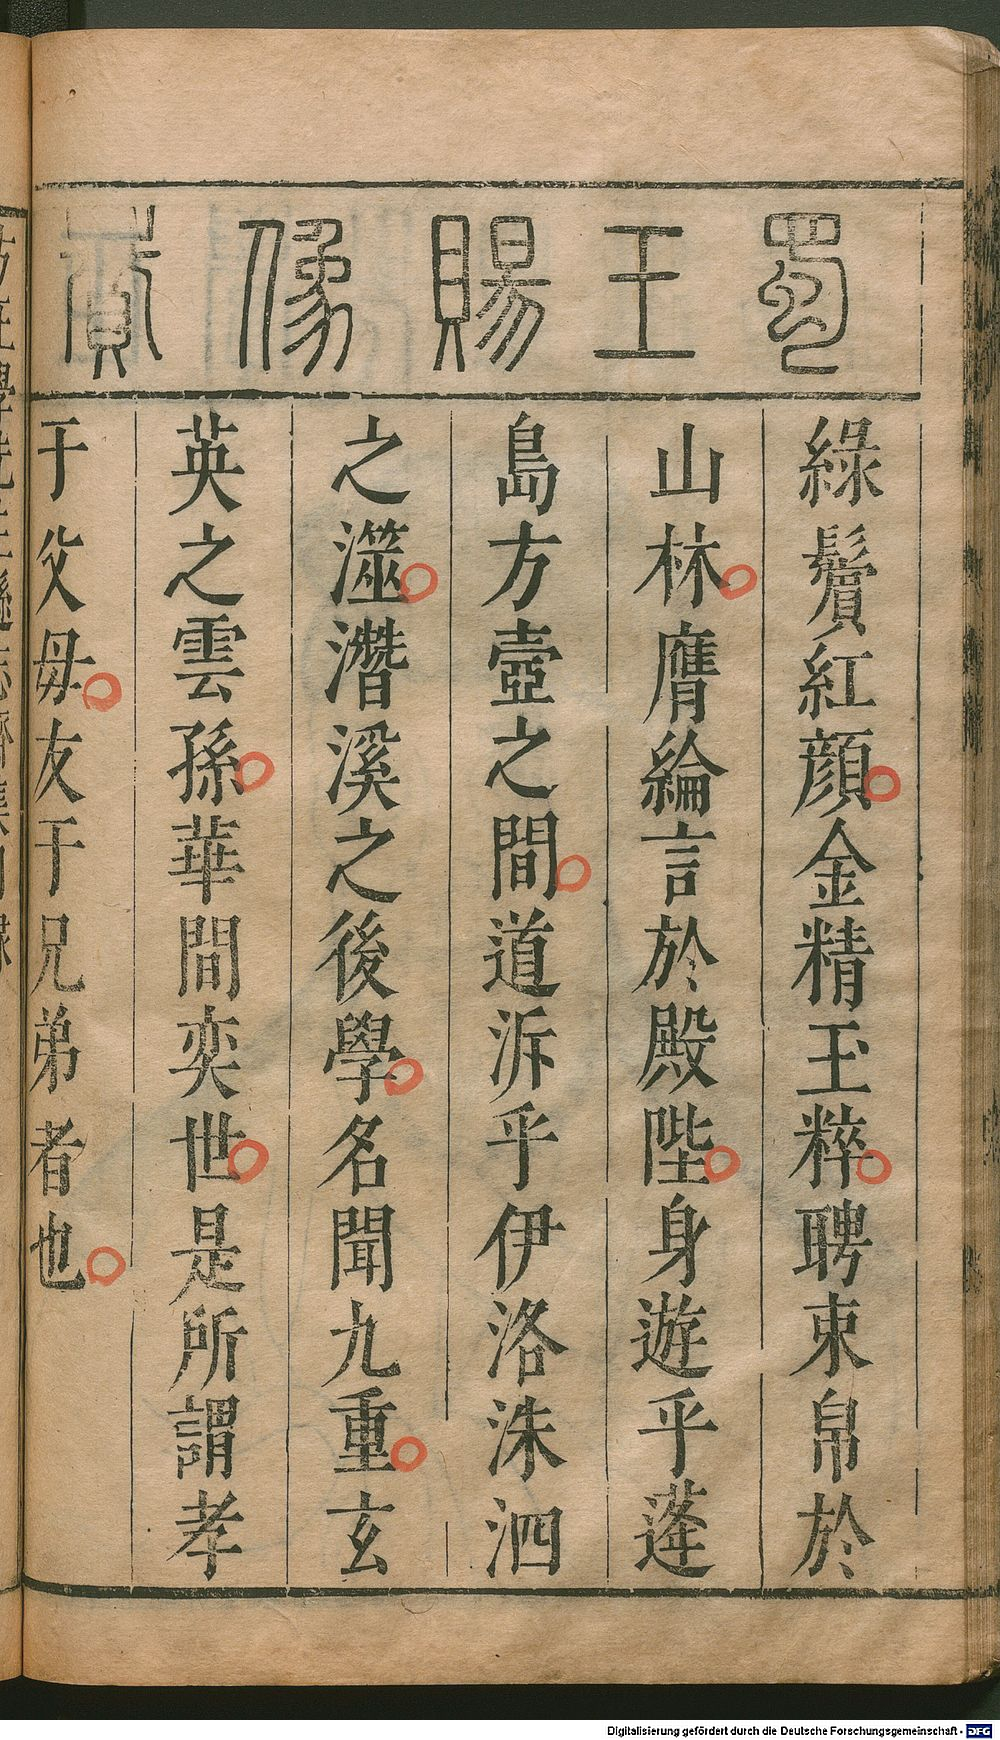 蜀王賜像賛
綠鬢紅顔金精玉粹聘束帛於
山林膺綸言於殿陛身遊乎蓬
島方壺之間道泝乎伊洛洙泗
之澨濳溪之後學名聞九重玄
英之雲孫華間奕世是所謂孝
于父母友于兄弟者也
Digitalisierung gefördert durch die Deutsche Forschungsgemeinschaft - DFG